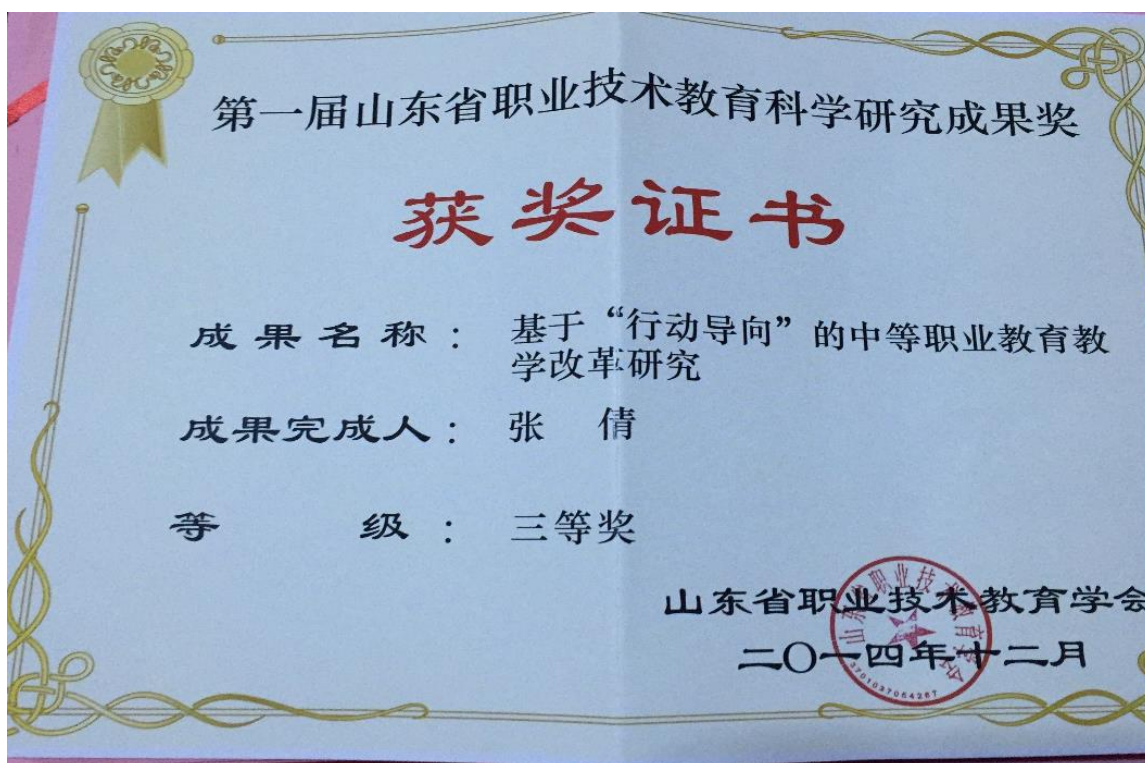 第一届山东省职业技术教育科学研究成果奖
获奖证书
成果名称：基于“行动导向”的中等职业教育教
学改革研究
成果完成人：张 倩
等 级：三等奖
山东省职业技术教育学会
二〇一四年十二月
山东省职业技术教育学会
3701037064267